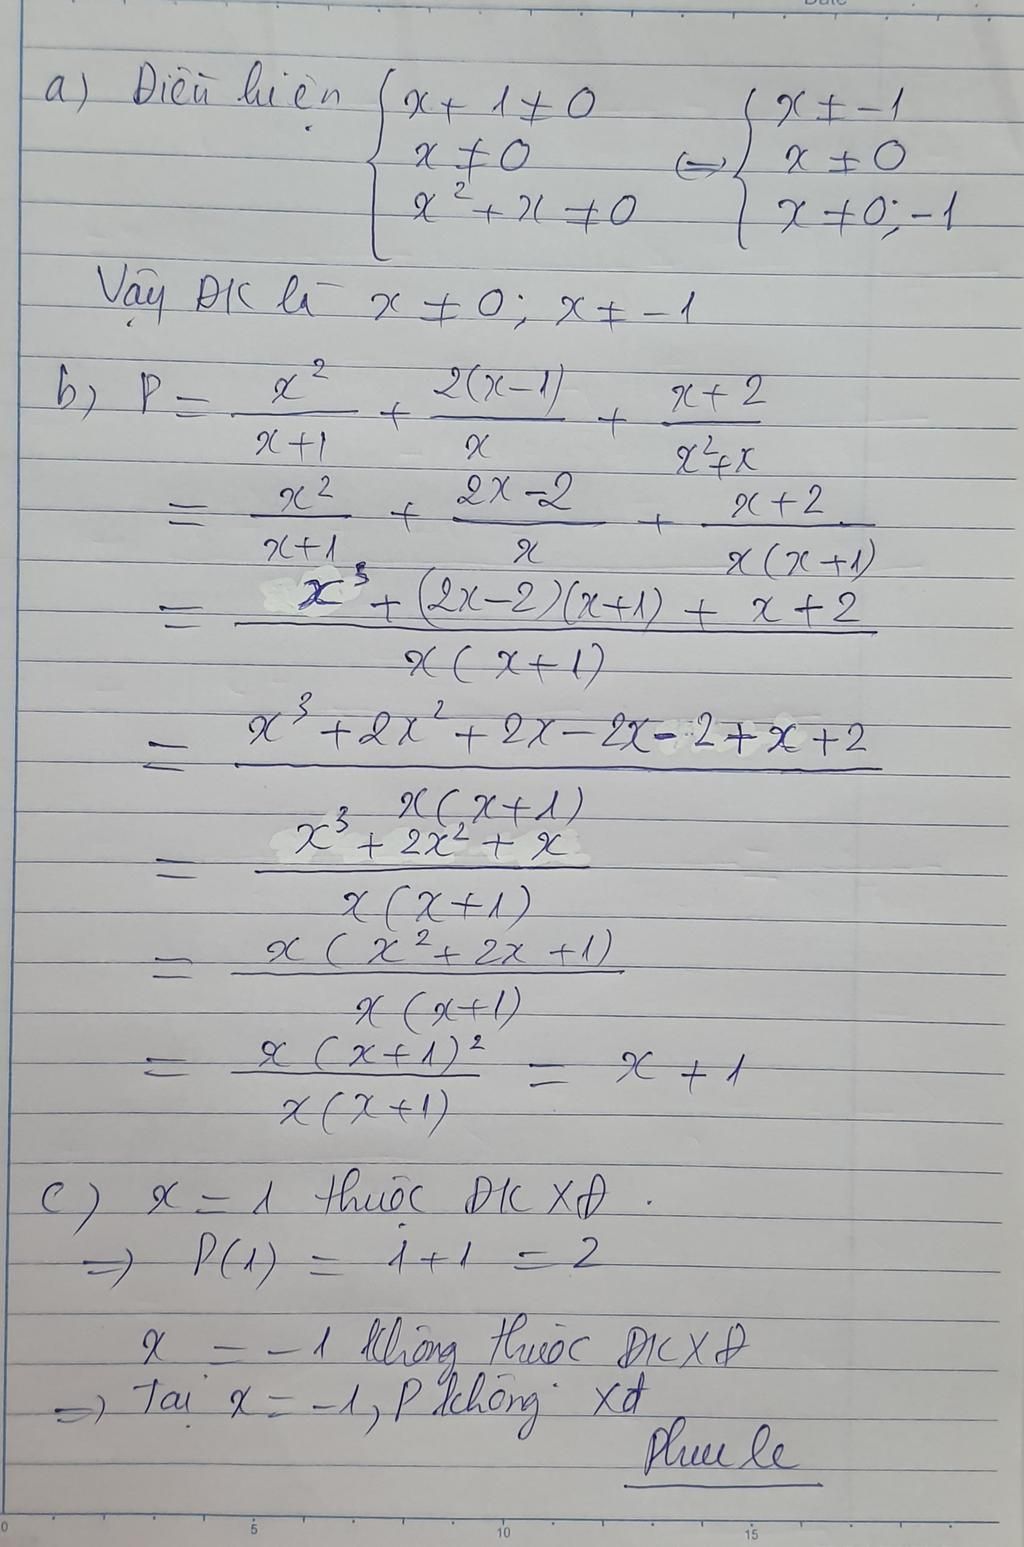 Date
a) Điều kiện { x + 1 ≠ 0 ⇔ { x ≠ -1
x ≠ 0 x ≠ 0
x² + x ≠ 0 x ≠ 0; -1
Vậy ĐK là x ≠ 0; x ≠ -1
b) P = x²/(x+1) + 2(x-1)/x + (x+2)/(x²+x)
= x²/(x+1) + (2x-2)/x + (x+2)/(x(x+1))
= (x³ + (2x-2)(x+1) + x + 2)/(x(x+1))
= (x³ + 2x² + 2x - 2x - 2 + x + 2)/(x(x+1))
= (x³ + 2x² + x)/(x(x+1))
= x(x² + 2x + 1)/(x(x+1))
= x(x+1)²/(x(x+1)) = x + 1
c) x = 1 thuộc ĐKXĐ.
⇒ P(1) = 1 + 1 = 2
x = -1 không thuộc ĐKXĐ
⇒ Tại x = -1, P không xđ
0 5 10 15